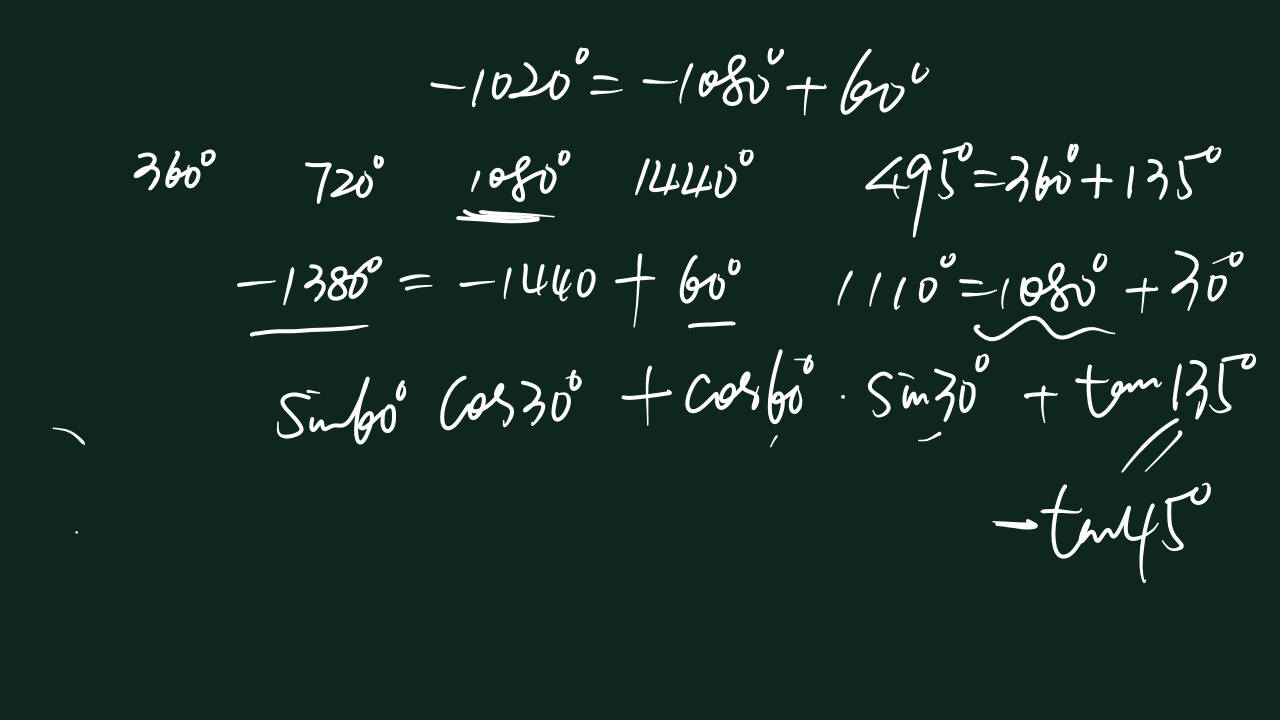 -1020° = -1080° + 60°
360° 720° 1080° 1440° 495° = 360° + 135°
-1380° = -1440 + 60° 1110° = 1080° + 30°
sin60° cos30° + cos60° · sin30° + tan135°
-tan45°